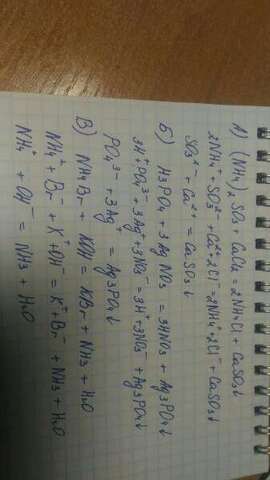 А) (NH4)2 SO3 + CaCl2 = 2NH4Cl + CaSO3↓
2NH4⁺ + SO3²⁻ + Ca²⁺ + 2Cl⁻ = 2NH4⁺ + 2Cl⁻ + CaSO3↓
SO3²⁻ + Ca²⁺ = CaSO3↓
Б) H3PO4 + 3AgNO3 = 3HNO3 + Ag3PO4↓
3H⁺ + PO4³⁻ + 3Ag⁺ + 3NO3⁻ = 3H⁺ + 3NO3⁻ + Ag3PO4↓
PO4³⁻ + 3Ag = Ag3PO4↓
В) NH4Br + KOH = KBr + NH3 + H2O
NH4⁺ + Br⁻ + K⁺ + OH⁻ = K⁺ + Br⁻ + NH3 + H2O
NH4⁺ + OH⁻ = NH3 + H2O